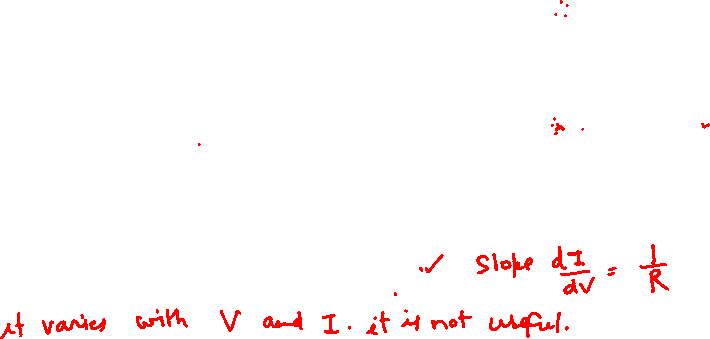 ✓ Slope dI/dV = 1/R
it varies with V and I. it is not useful.